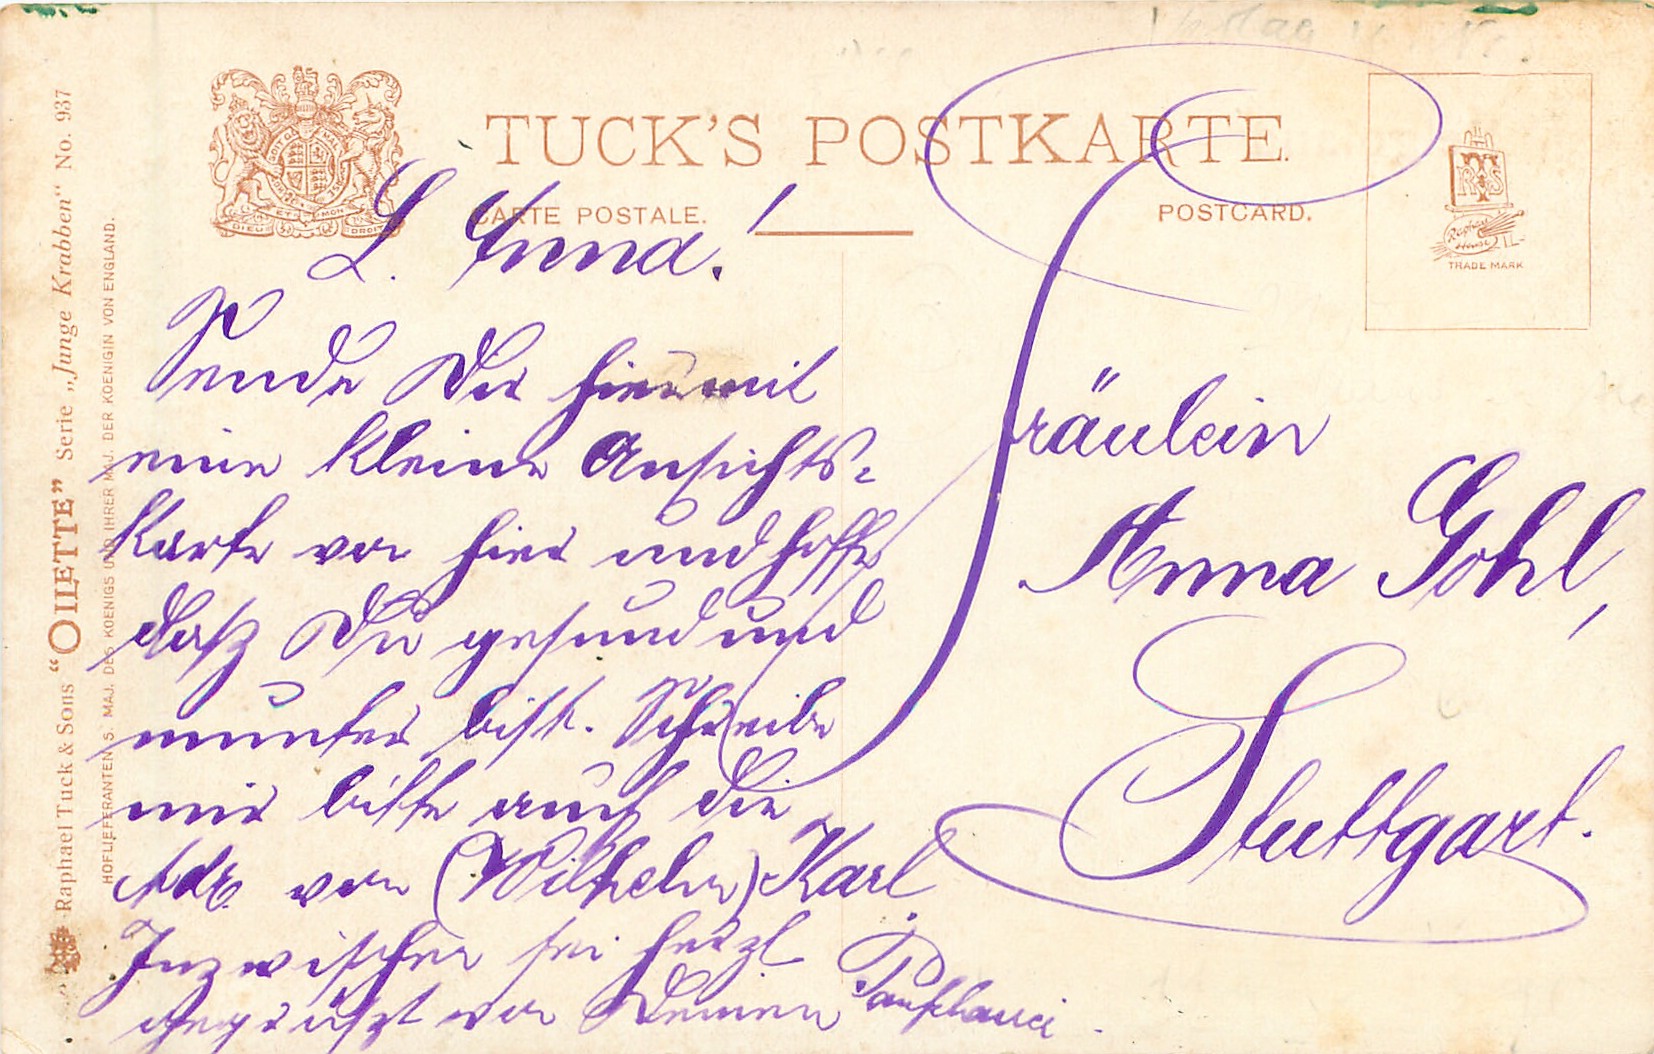 TUCK'S POSTKARTE.
CARTE POSTALE.
POSTCARD.
DIEU ET MON DROIT
RTS
Raphael House
TRADE MARK
Raphael Tuck & Sons "OILETTE" Serie „Junge Krabben" No. 937
HOFLIEFERANTEN S. MAJ. DES KOENIGS UND IHRER MAJ. DER KOENIGIN VON ENGLAND.
L. Anna!
Sende Dir hiermit
eine kleine Ansichts-
Karte von hier und hoffe
daß Du gesund und
munter bist. Schreibe
mir bitte auch die
Adr. von (Wilhelm) Karl
Inzwischen sei herzl
gegrüßt von Deinem
Fräulein
Anna Gohl,
Stuttgart.